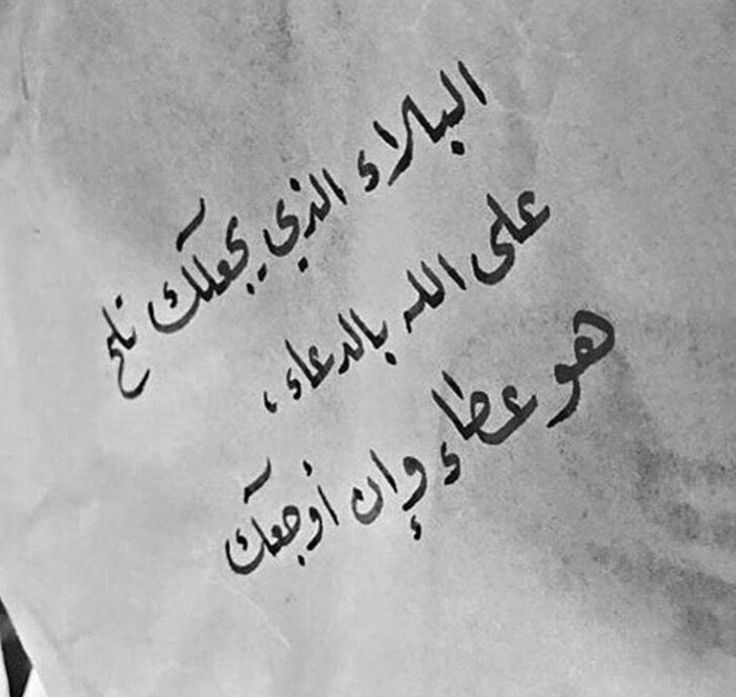 البلاء الذي يجعلك تلح
على الله بالدعاء ،
هو عطاء وإن أوجعك